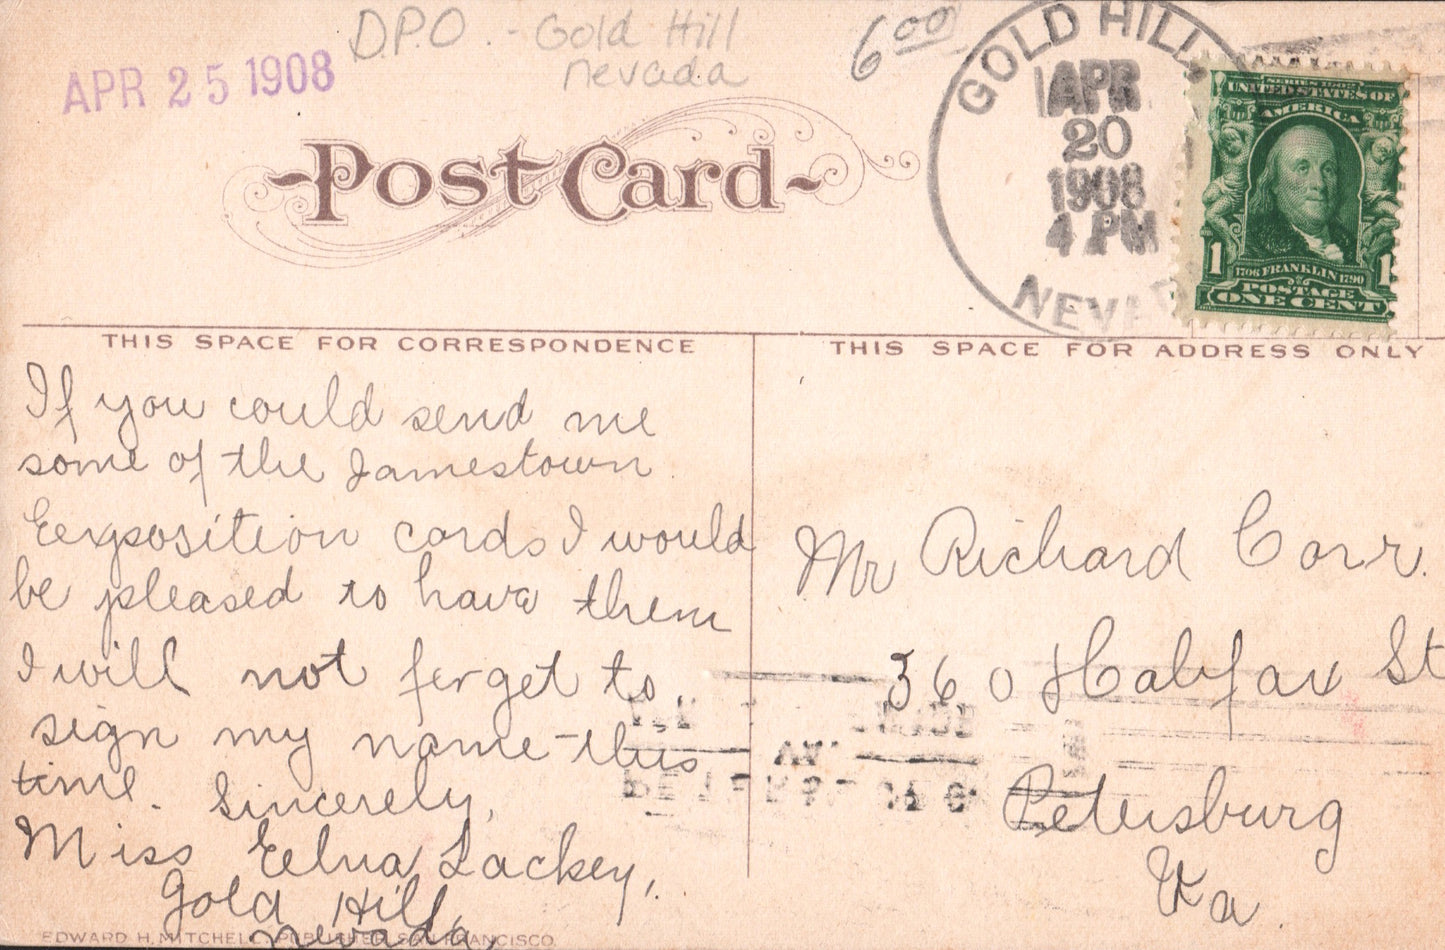 D.P.O. - Gold Hill
nevada
6.00
APR 25 1908
Post Card
GOLD HILL
APR
20
1908
4 PM
NEVAD
SERIES 1902
UNITED STATES OF
AMERICA
1 1
1706 FRANKLIN 1790
POSTAGE
ONE CENT
THIS SPACE FOR CORRESPONDENCE
If you could send me
some of the Jamestown
Eexposition cards I would
be pleased to have them
I will not forget to
sign my name this
time. Sincerely,
Miss Edna Lackey,
Gold Hill,
Nevada,
EDWARD H. MITCHELL, PUBLISHER, SAN FRANCISCO.
THIS SPACE FOR ADDRESS ONLY
Mr Richard Corr.
360 Halifax St
Petersburg
Va.